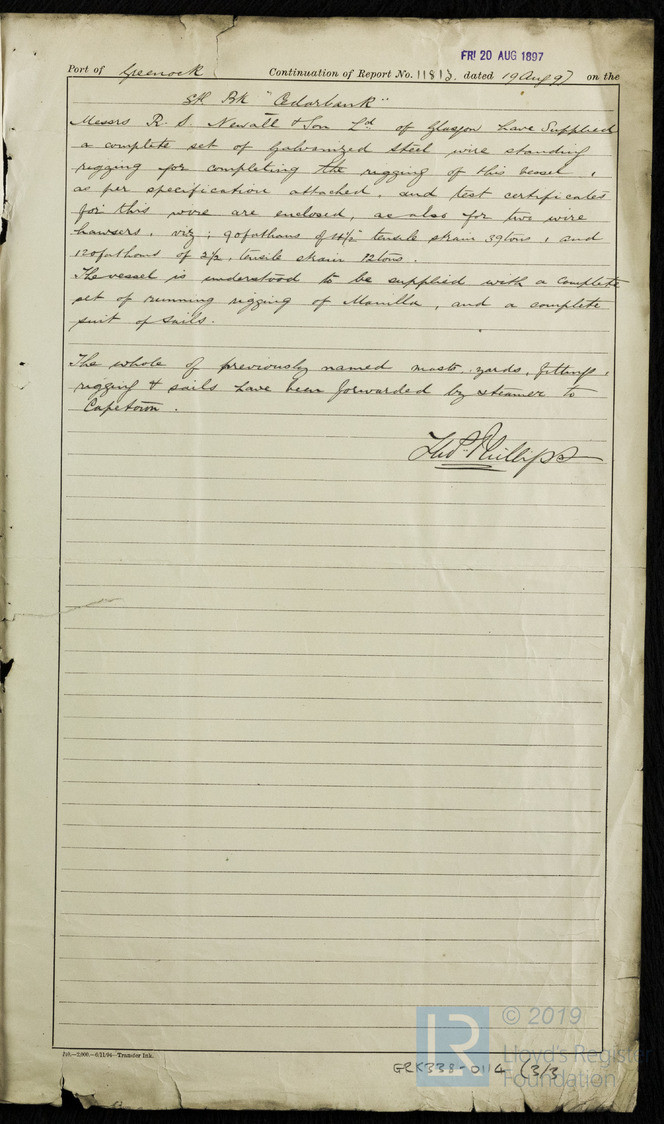 FRI 20 AUG 1897
Port of Greenock Continuation of Report No. 11813. dated 19 Aug 97 on the
Stl Bk "Cedarbank"
Messrs R. S. Newall & Son Ld. of Glasgow have Supplied
a complete set of Galvanized steel wire standing
rigging for completing the rigging of this vessel,
as per specification attached, and test certificates
for this wire are enclosed, as also for two wire
hawsers, viz; 90 fathoms of 4½ tensile strain 39 tons, and
120 fathoms of 2½, tensile strain 12 tons.
The vessel is understood to be supplied with a complete
set of running rigging of Manilla, and a complete
suit of sails.
The whole of previously named masts, yards, fittings,
rigging & sails have been forwarded by steamer to
Capetown.
Thos. Phillips
—2,000.—6/11/94—Transfer Ink.
© 2019
LR
Lloyd's Register
Foundation
GRK338-0114 (3/3